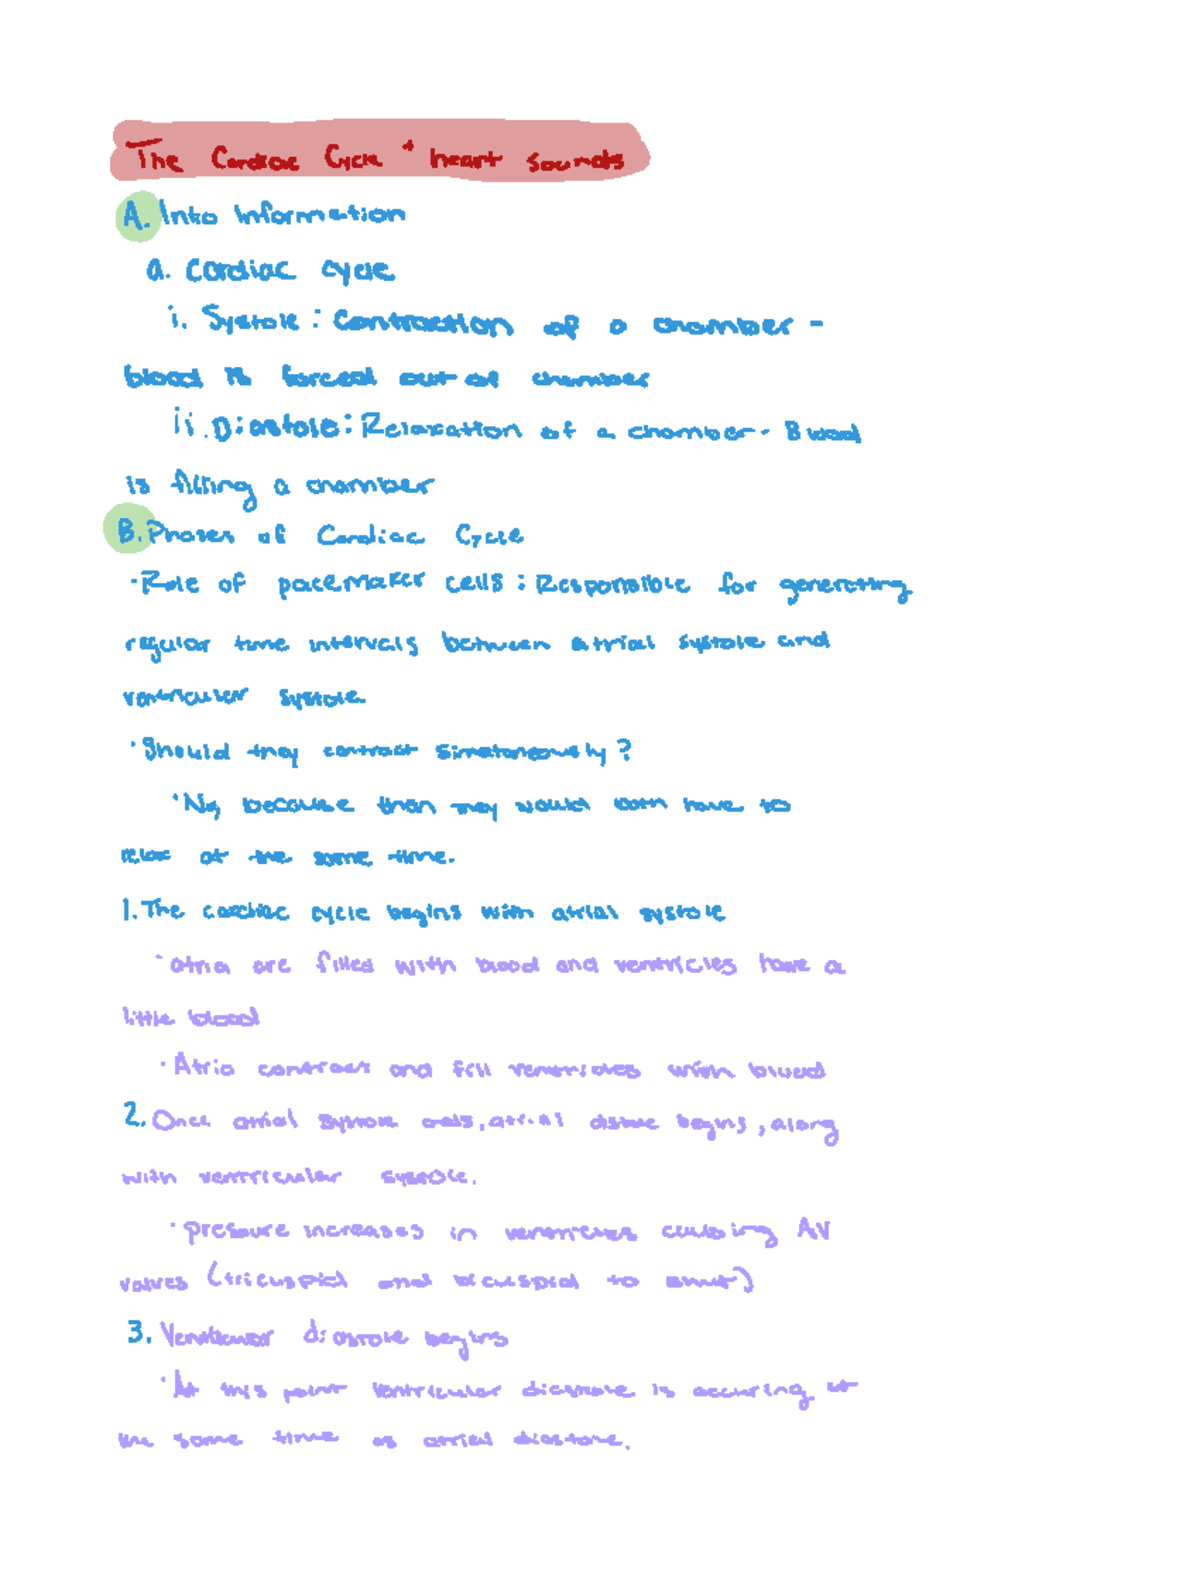 The Cardiac Cycle + heart sounds
A. Into Information
a. Cardiac cycle
i. Systole: Contraction of a chamber -
blood is forced out of chamber
ii. Diastole: Relaxation of a chamber - Blood
is filling a chamber
B. Phases of Cardiac Cycle
· Role of pacemaker cells: Responsible for generating
regular time intervals between atrial systole and
ventricular systole
· Should they contract simataneously?
· No, because then they would both have to
relax at the same time.
1. The cardiac cycle begins with atrial systole
· atria are filled with blood and ventricles have a
little blood
· Atria contract and fill ventricles with blood
2. Once atrial systole ends, atrial begins, along
with ventricular systole.
· pressure increases in ventricles causing AV
valves (tricuspid and bicuspid to shut)
3. Ventricular diastole begins
· At this point ventricular diastole is accuring at
the same time as atrial diastole.